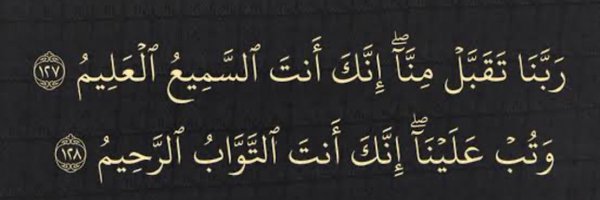 رَبَّنَا تَقَبَّلۡ مِنَّآۖ إِنَّكَ أَنتَ ٱلسَّمِيعُ ٱلۡعَلِيمُ ١٢٧
وَتُبۡ عَلَيۡنَآۖ إِنَّكَ أَنتَ ٱلتَّوَّابُ ٱلرَّحِيمُ ١٢٨